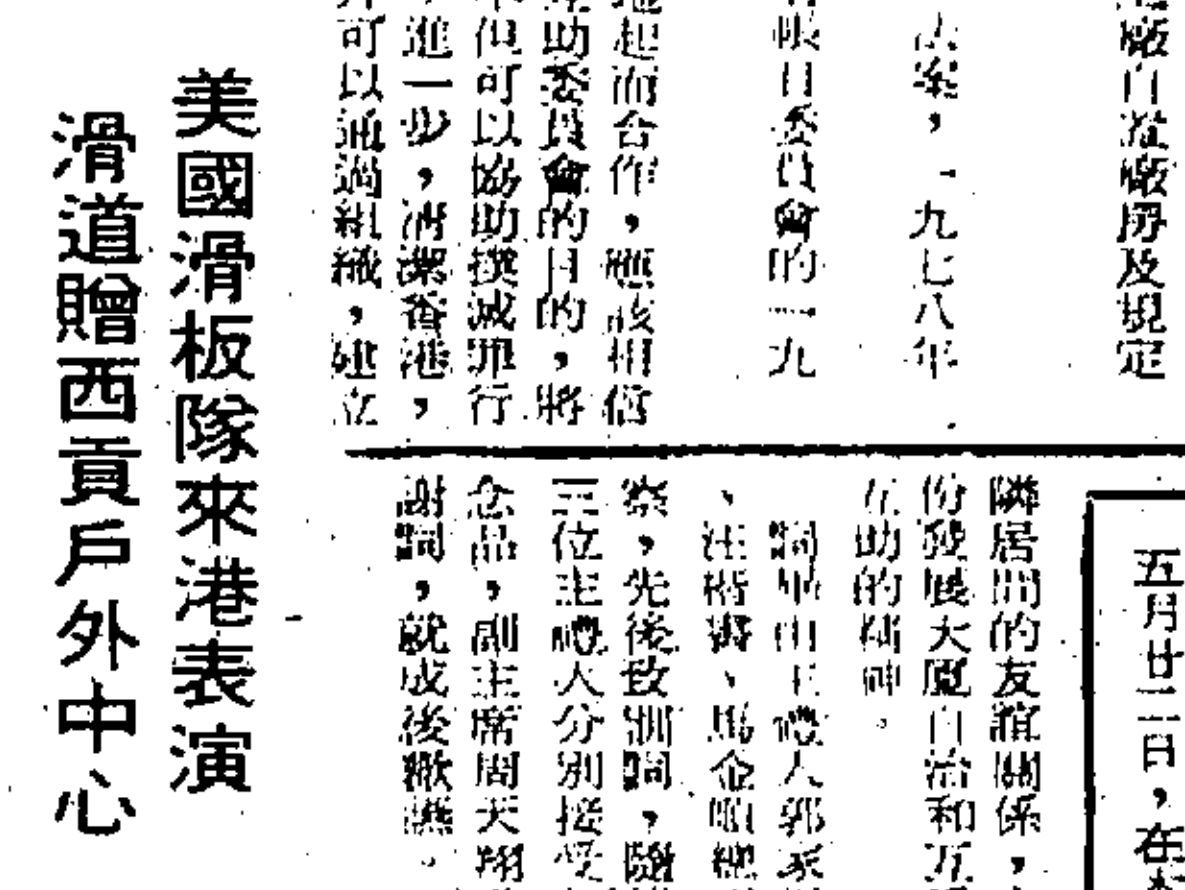 廠自置廠房及規定
決案，一九七八年
帳目委員會的一九
起而合作，應該相信
助委員會的目的，將
但可以協助撲滅罪行
進一步，清潔香港，
可以通過組織，建立
五月廿二日，在
隣居間的友誼關係，
份發展大廈自治和互
互助的精神。
詞畢由主禮人郭
、汪
察，先後致訓詞，隨
三位主禮人分別接受
念品，副主席周天翔
謝詞，就成後歡讌。
美國滑板隊來港表演
滑道贈西貢戶外中心